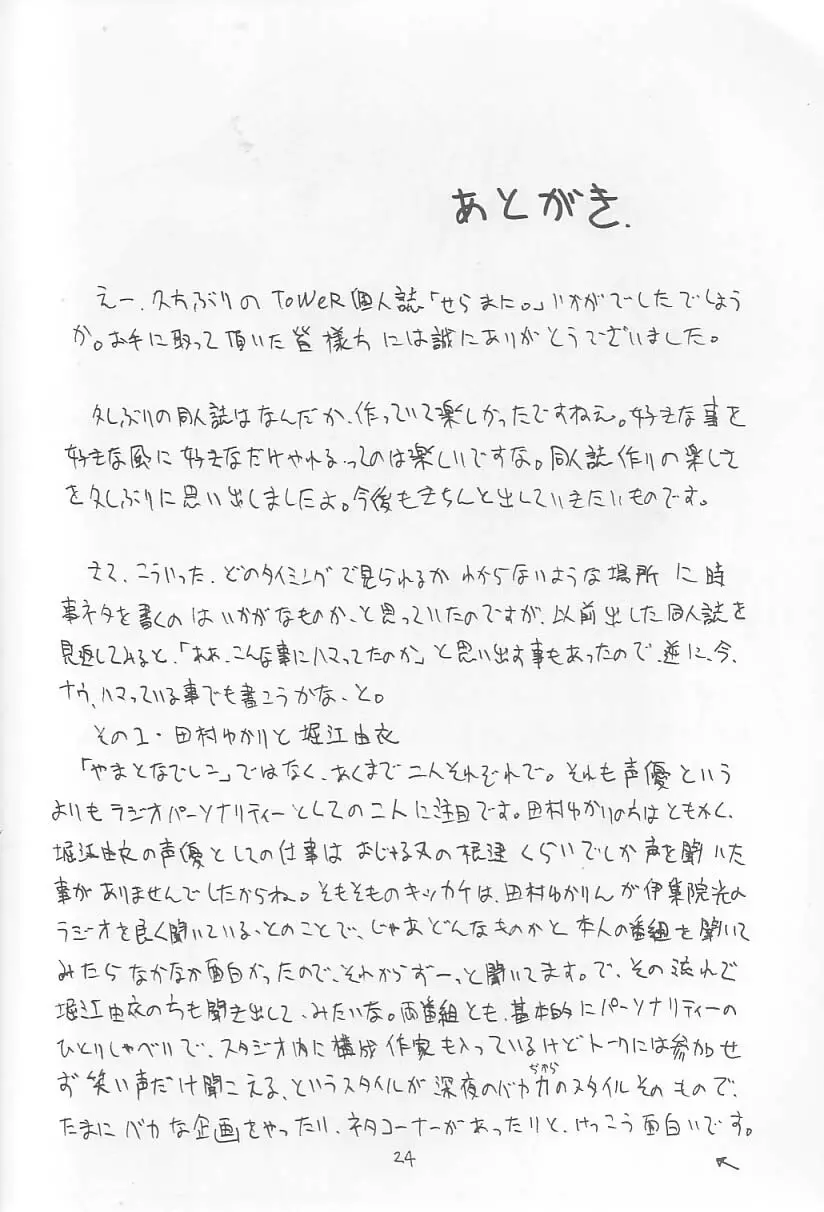 あとがき.
えー、久方ぶりのToWeR個人誌「せらまに。」いかがでしたでしょう
か。お手に取って頂いた皆様方には誠にありがとうございました。
久しぶりの同人誌はなんだか、作っていて楽しかったですねえ。好きな事を
好きな風に好きなだけやれる、ってのは楽しいですな。同人誌作りの楽しさ
を久しぶりに思い出しましたよ。今後もきちんと出していきたいものです。
さて、こういった、どのタイミングで見られるかわからないような場所に時
事ネタを書くのはいかがなものか、と思っていたのですが、以前出した同人誌を
見返してみると、「ああ、こんな事にハマってたのか」と思い出す事もあったので、逆に、今、
ナウ、ハマっている事でも書こうかな、と。
その1・田村ゆかりと堀江由衣
「やまとなでしこ」ではなく、あくまで二人それぞれで。それも声優という
よりもラジオパーソナリティーとしての二人に注目です。田村ゆかりの方はともかく、
堀江由衣の声優としての仕事はおじゃる丸の くらいでしか声を聞いた
事がありませんでしたからね。そもそものキッカケは、田村ゆかりんが伊集院光の
ラジオを良く聞いている、とのことで、じゃあどんなものかと本人の番組を聞いて
みたらなかなか面白かったので、それからずーっと聞いてます。で、その流れで
堀江由衣のも聞き出して、みたいな。両番組とも、基本的にパーソナリティーの
ひとりしゃべりで、スタジオ内に構成作家も入っているけどトークには参加せ
ず笑い声だけ聞こえる、というスタイルが深夜のバカ力(ぢから)のスタイルそのもので、
たまにバカな企画をやったり、ネタコーナーがあったりと、けっこう面白いです。
24